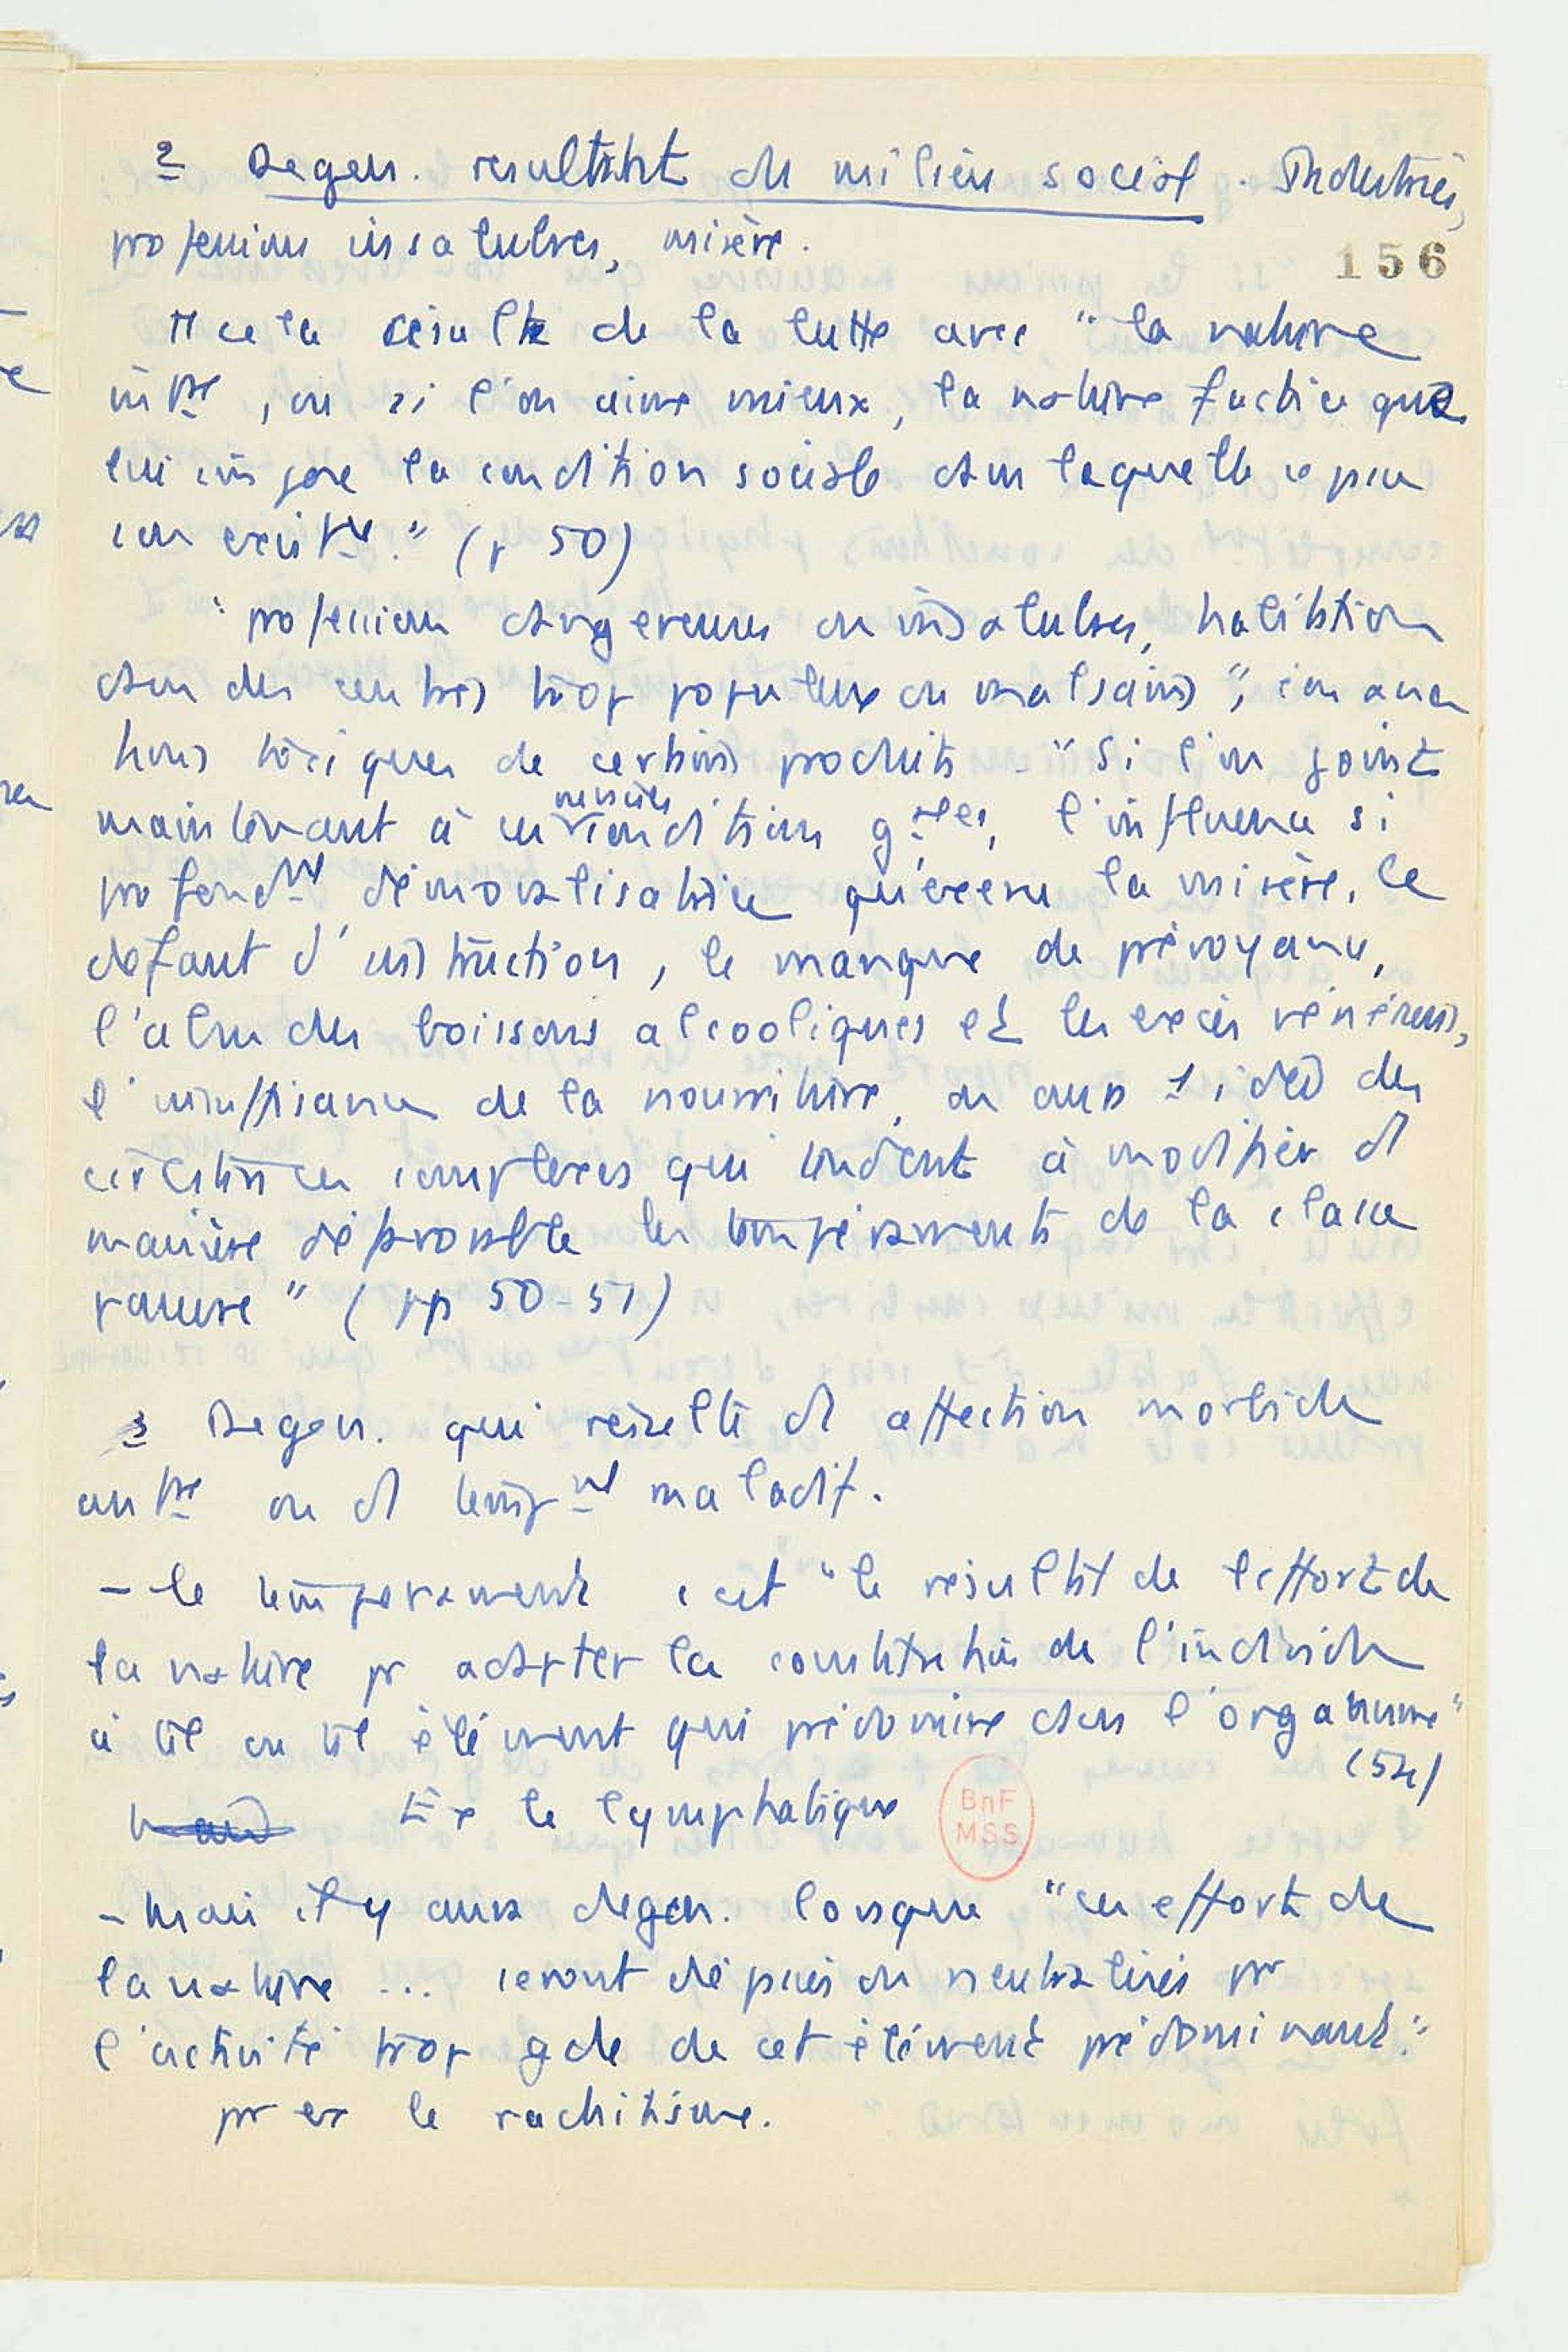 2 Degen. resultant du milieu social. Industries,
professions insalubres, misère.
156
Tt cela résulte de la lutte avec "la nature
ou si l'on aime mieux, la nature factice que
lui impose la condition sociale dans laquelle se passe
son existce." (p 50)
"professions dangereuses ou insalubres, habitation
dans des centres trop populeux ou malsains", conséquences
toxiques de certains produits - "Si l'on joint
maintenant à ces conditions gales, l'influence si
profondmt démoralisatrice qu'exerce la misère, le
défaut d'instruction, le manque de prévoyance,
l'abus des boissons alcooliques et les excès vénériens,
l'insuffisance de la nourriture, on aura 1 idée des
circstances complexes qui tendent à modifier d
manière défavorable les tempéraments de la classe
pauvre" (pp 50-51)
3 Degen. qui résulte d affection morbide
antre ou d tempmt maladif.
- le tempérament c'est "le résultat de l'effort de
la nature pr adapter la constitution de l'individu
à tel ou tel élément qui prédomine dans l'organisme"
(54)
Ex le lymphatique
BnF
MSS
- mais il y aura degen. lorsque "ces efforts de
la nature ... seront dépassés ou neutralisés pr
l'activité trop gde de cet élément prédominant."
pr ex le rachitisme.